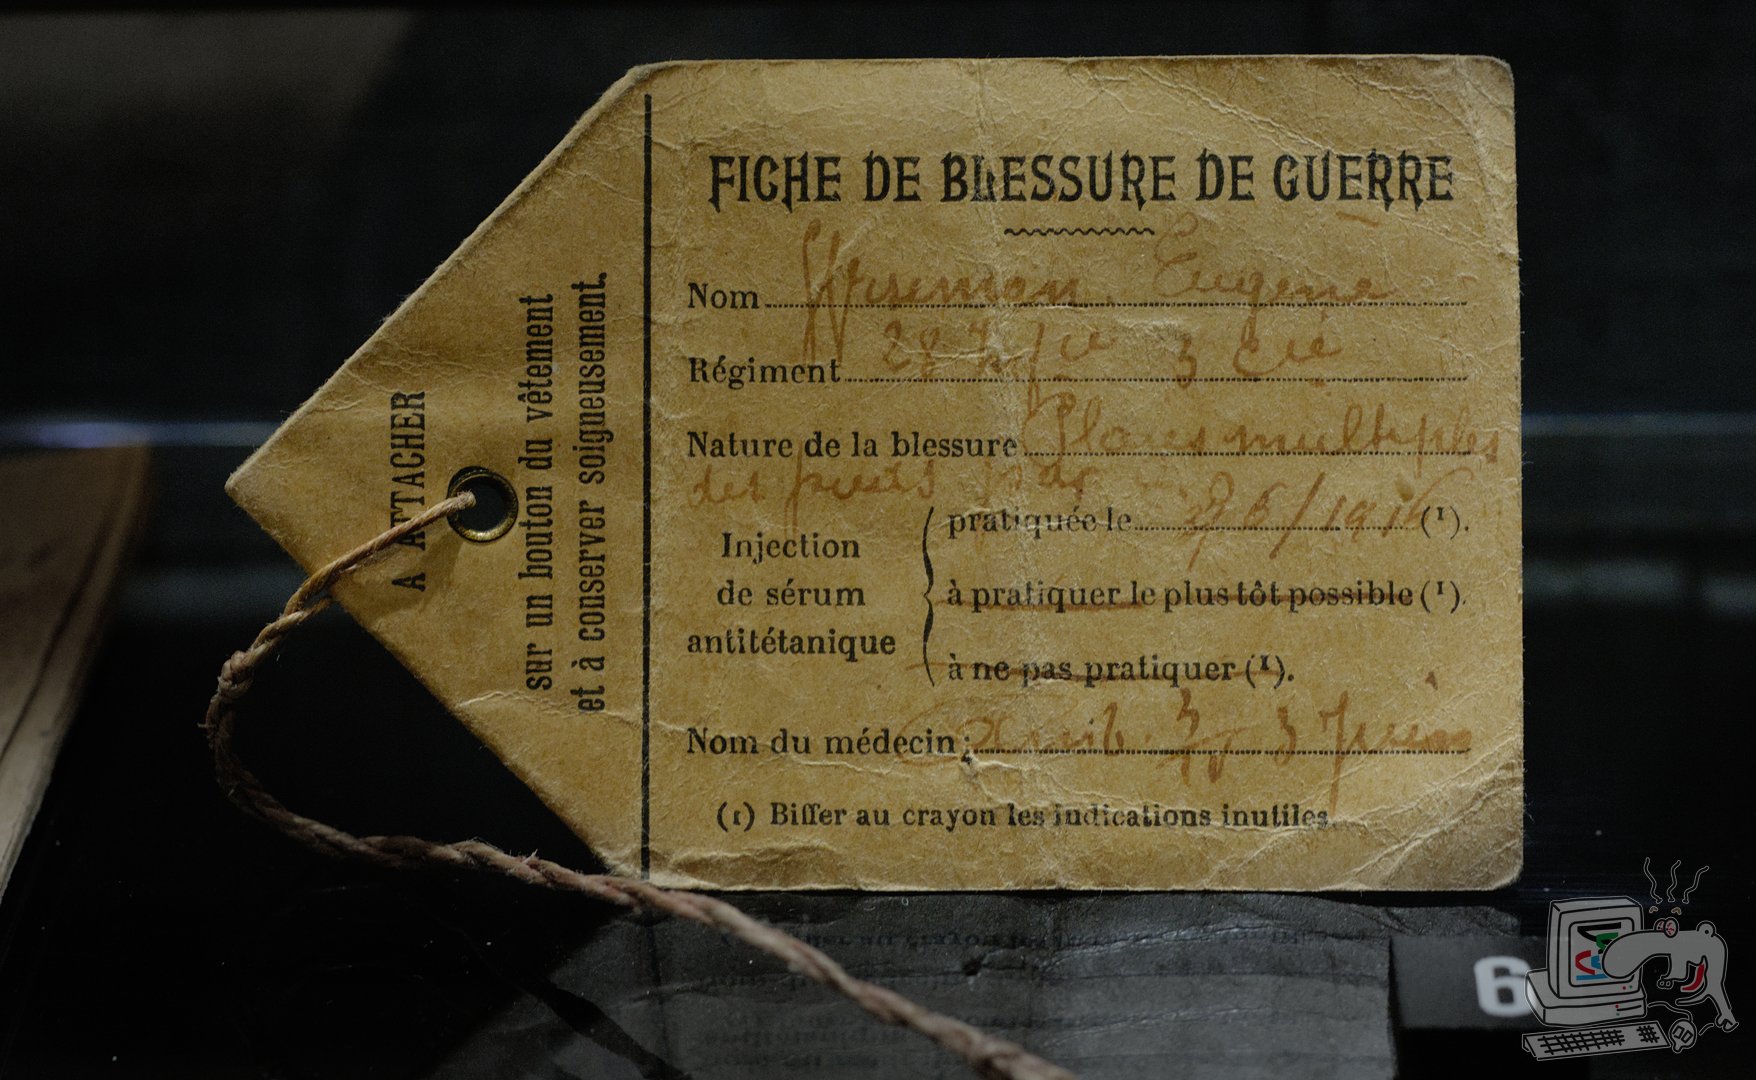 A ATTACHER
sur un bouton du vêtement
et à conserver soigneusement.
FICHE DE BLESSURE DE GUERRE
Nom Eugène
Régiment 287 3 Cie
Nature de la blessure Plaies multiples
des pieds par
Injection
de sérum
antitétanique
pratiquée le 6/1916 (1).
à pratiquer le plus tôt possible (1).
à ne pas pratiquer (1).
Nom du médecin : 3 Juin
(1) Biffer au crayon les indications inutiles.
6